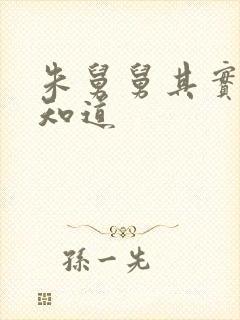 朱舅舅其實
知道
孫一先